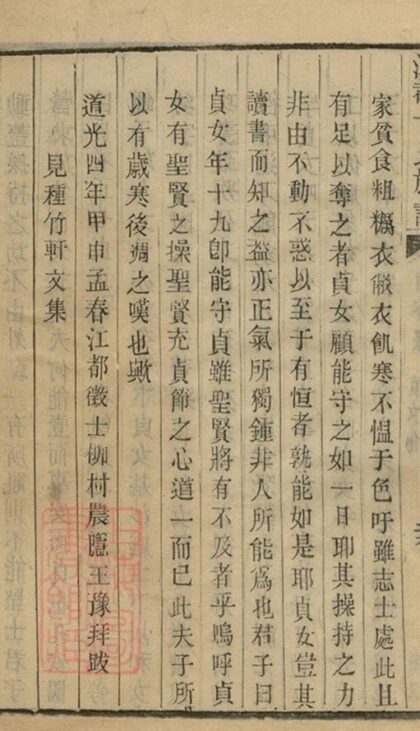 家貧食粗糲衣敝衣飢寒不慍于色吁雖志士處此且
有足以奪之者貞女顧能守之如一日耶其操持之力
非由不動不惑以至于有恒者孰能如是耶貞女豈其
讀書而知之益亦正氣所獨鍾非人所能爲也君子曰
貞女年十九卽能守貞雖聖賢將有不及者乎嗚呼貞
女有聖賢之操聖賢充貞節之心道一而已此夫子所
以有歲寒後凋之嘆也歟
道光四年甲申孟春江都徵士柳村農隱王豫拜跋
見種竹軒文集